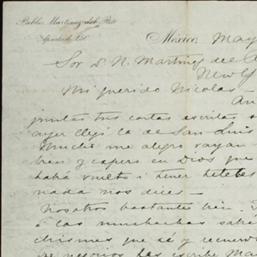 Pablo Martinez del Rio
Apartado
México, May
Sor D. N. Martinez del
New Y
Mi querido Nicolas —
An
juntas tus cartas escritas
ayer llegó la de San Luis
Mucho me alegro vayan
bien y espero en Dios que
habrá vuelto á tener
nada nos dices —
Nosotros bastante bien.
E las muchachas
chismes que sé y recuerdo